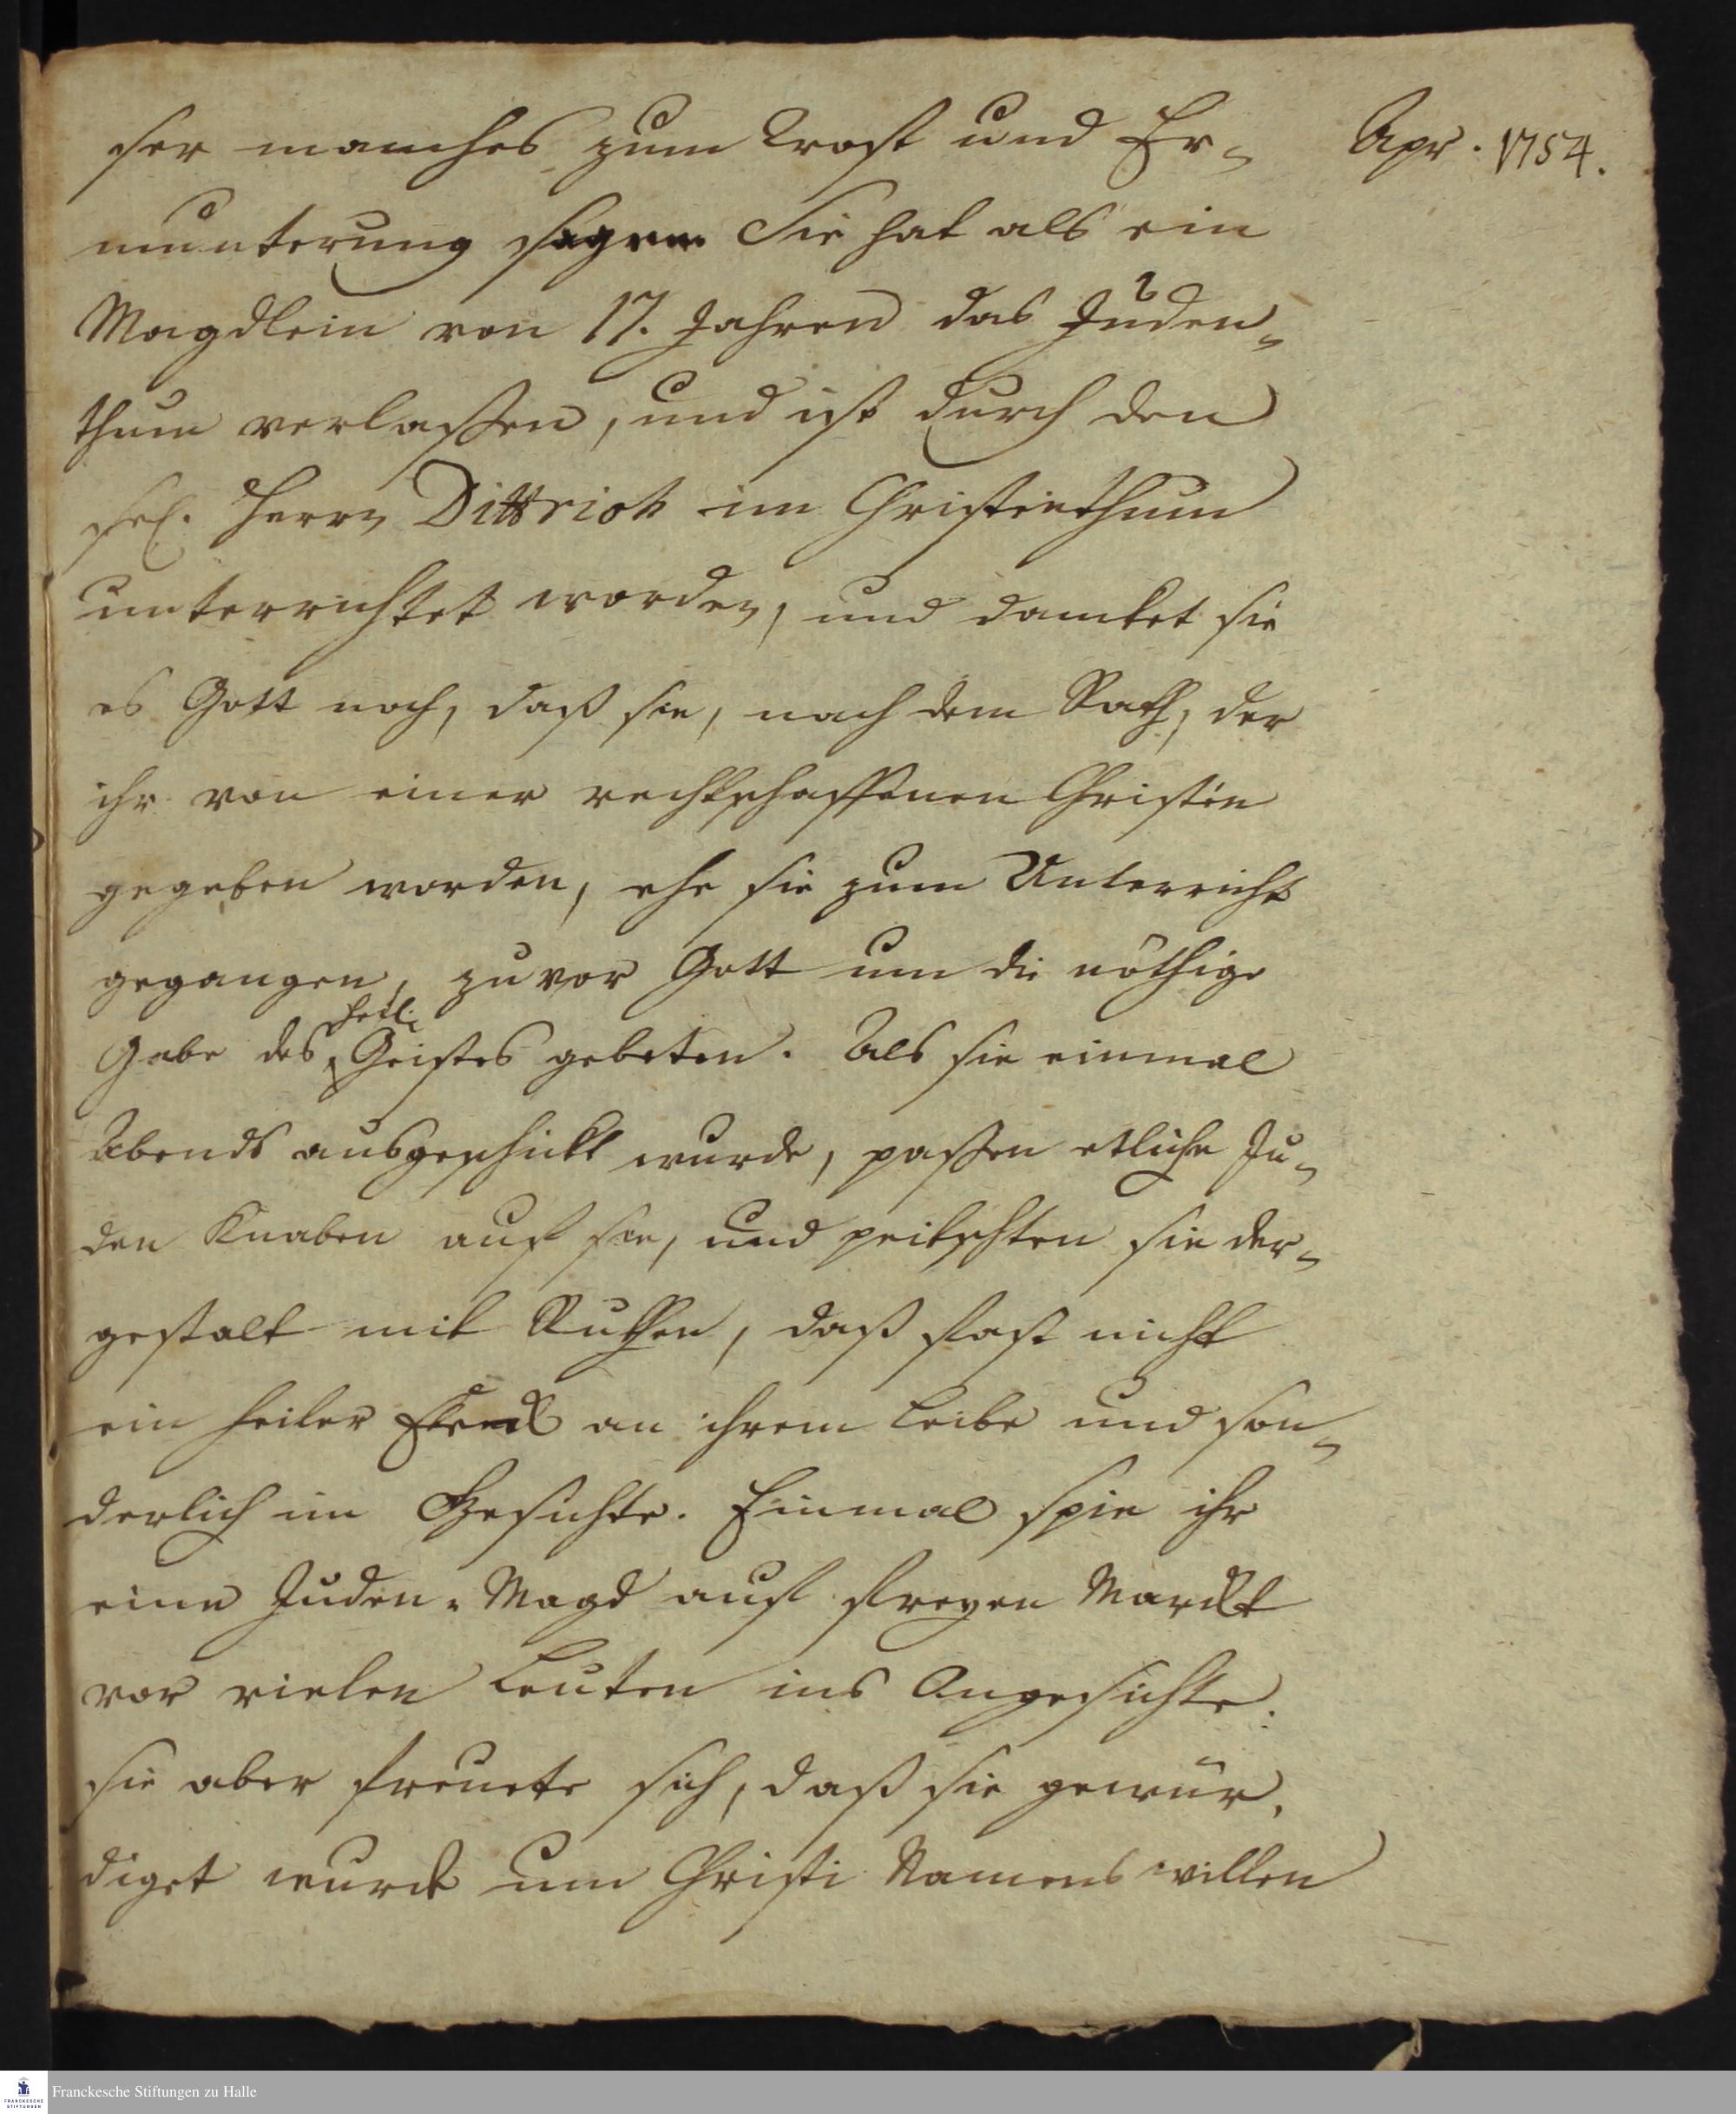 ser manches zum Trost und Er-
Apr. 1754.
munterung sagen. Sie hat als ein
Magdlein von 17. Jahren das Juden-
thum verlaßen, und ist durch den
sel. Herrn Dittrich im Christenthum
unterrichtet worden, und dancket sie
es Gott noch, daß sie, nach dem Rath, der
ihr von einer rechtschaffenen Christin
gegeben worden, ehe sie zum Unterricht
gegangen, zuvor Gott um die nöthige
Gabe des heil. Geistes gebeten. Als sie einmal
Abends ausgeschickt wurde, paßen etliche Ju-
den Knaben auf sie, und peitschten sie der-
gestalt mit Ruthen, daß fast nicht
ein heiler Fleck an ihrem Leibe und son-
derlich im Gesichte. Einmal spie ihr
eine Juden-Magd auf freyen Marckt
vor vielen Leuten ins Angesichte.
sie aber freuete sich, daß sie gewür-
diget wurde um Christi Namens willen
Franckesche Stiftungen zu Halle